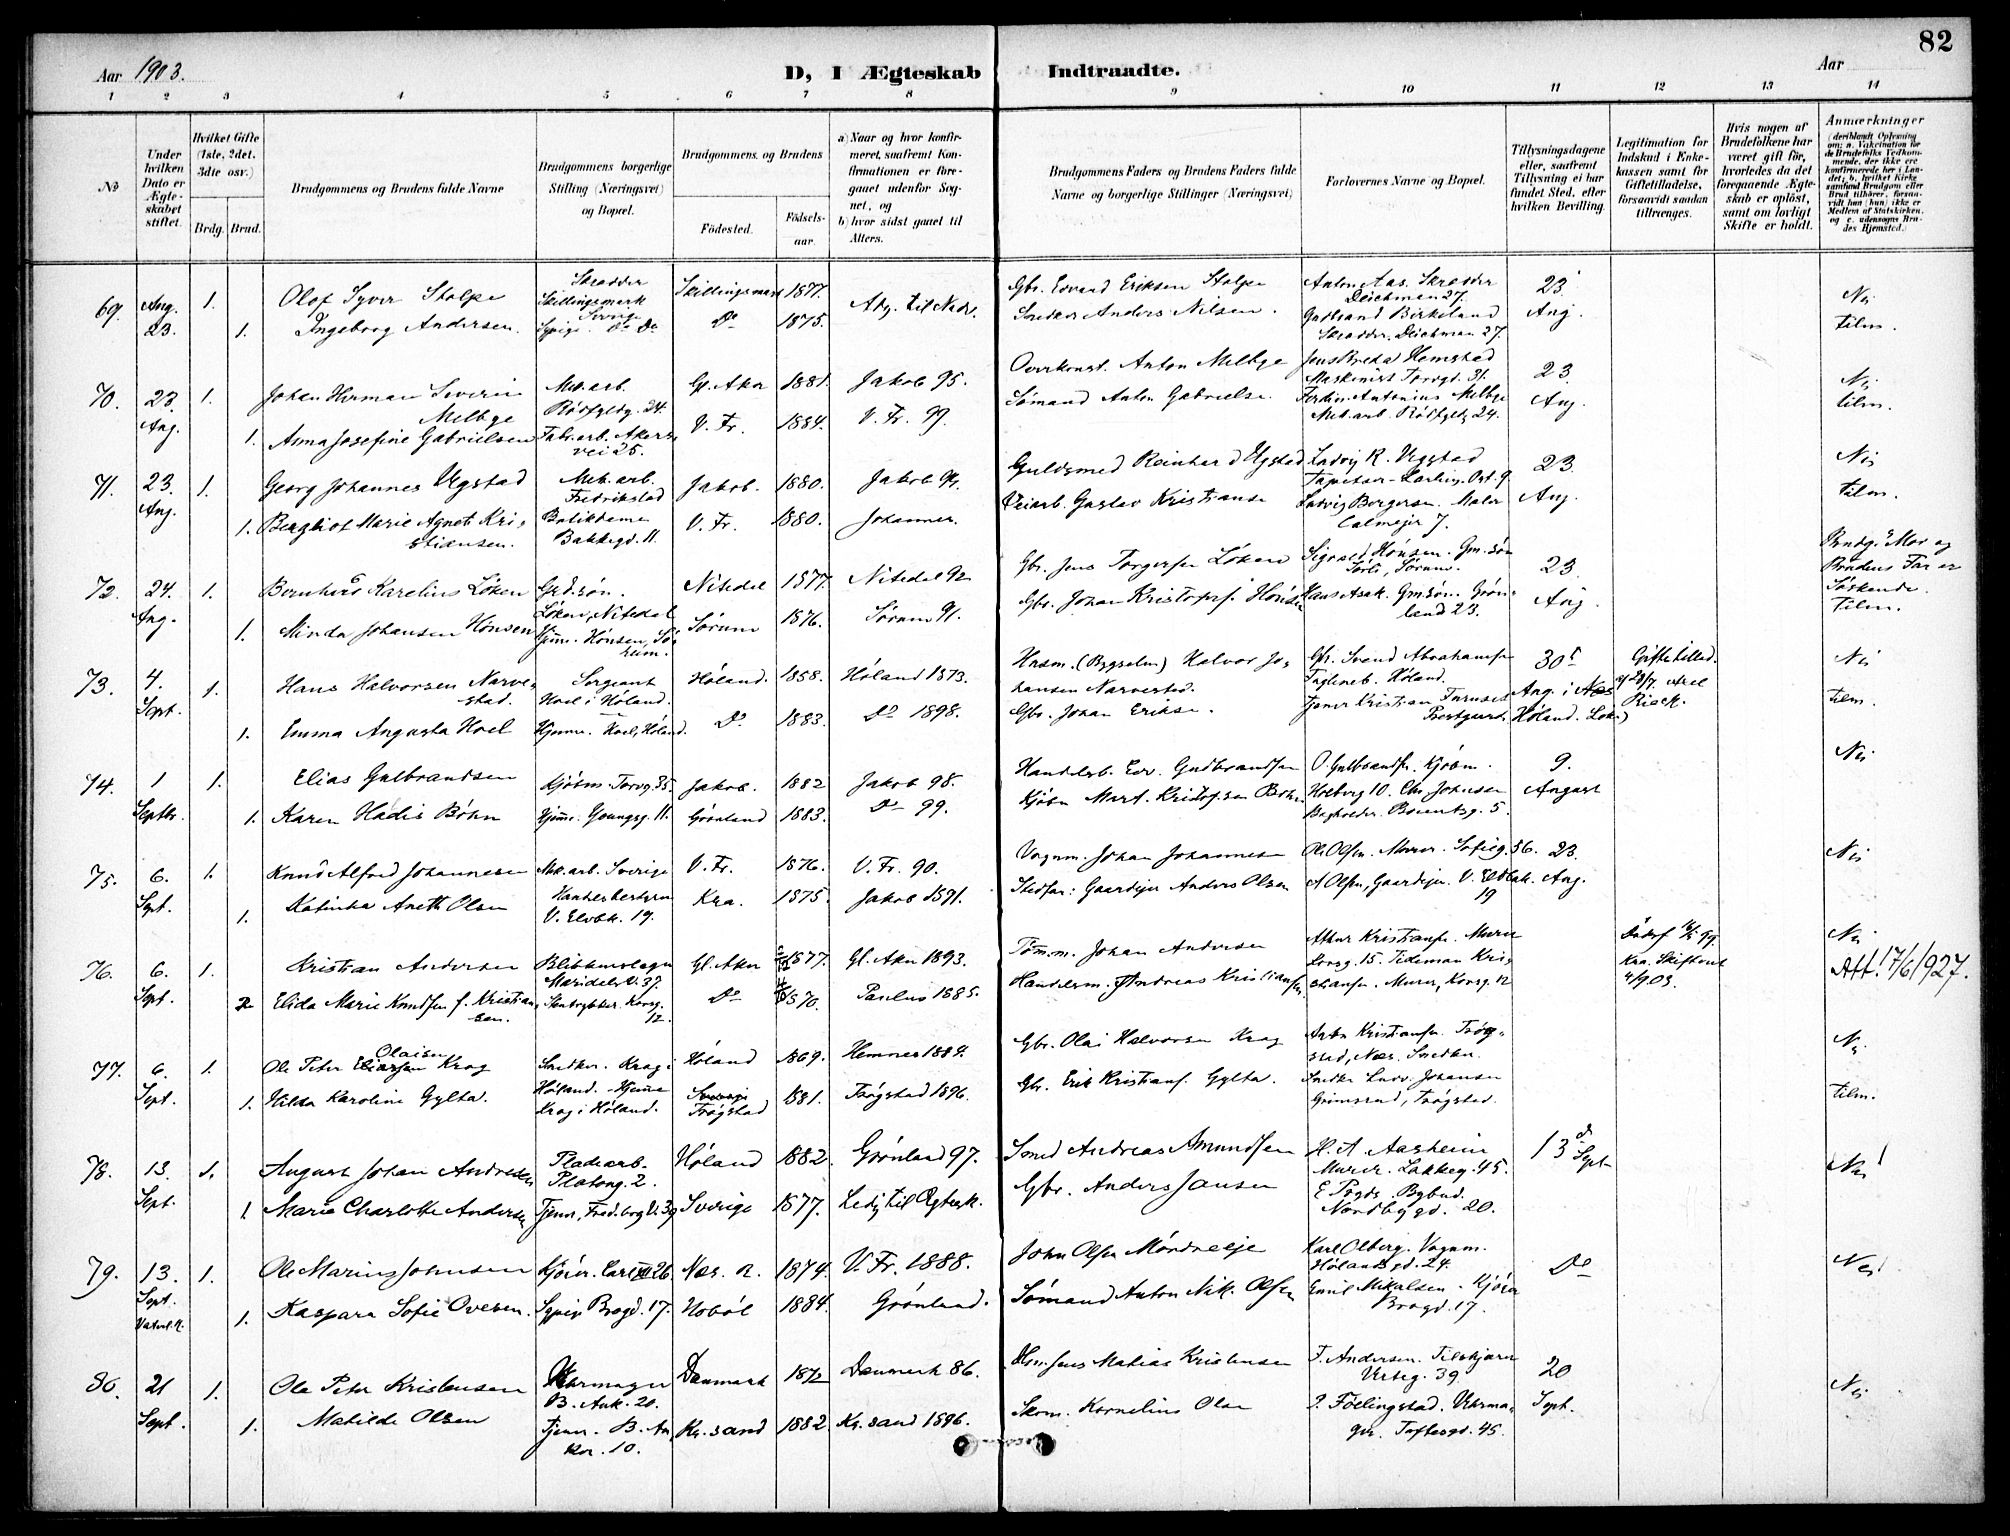 82
Aar 1903.
D, I Ægteskab Indtraadte.
Aar
1 2 3 4 5 6 7 8 9 10 11 12 13 14
No
Under hvilken Dato er Ægteskabet stiftet.
Hvilket Gifte (1ste, 2det, 3die osv.)
Brdg. Brud.
Brudgommens og Brudens fulde Navne
Brudgommens borgerlige Stilling (Næringsvei) og Bopæl.
Brudgommens og Brudens
Födested.
Födsels-aar.
a) Naar og hvor konfirmeret, saafremt Konfirmationen er foregaaet udenfor Sognet, og
b) hvor sidst gaaet til Alters.
Brudgommens Faders og Brudens Faders fulde Navne og borgerlige Stillinger (Næringsvei)
Forlovernes Navne og Bopæl.
Tillysningsdagene eller, saafremt Tillysning ei har fundet Sted, efter hvilken Bevilling.
Legitimation for Indskud i Enkekassen samt for Giftetilladelse, forsaavidt saadan tiltrænges.
Hvis nogen af Brudefolkene har været gift för, hvorledes da det foregaaende Ægteskab er oplöst, samt om lovligt Skifte er holdt.
Anmærkninger
69. Aug. 23. 1. Olof Syver Stolpe Skrædder Skillingsmark Sverige Skillingsmark 1877. Adg. til Nadv. Gbr. Edvard Eriksen Stolpe Anton Aas. Skrædder Deichman 27. 23 Aug. Nei
1. Ingeborg Andersen. Sypige. Do Do Do 1875. Snedker Anders Nilsen. Gulbrand Birkeland Skrædder. Deichman 27. tilm.
70. 23. Aug. 1. Johan Herman Severin Melbye Mek. arb. Rödfyldg. 24. Gl. Aker 1881. Jakob 95. Overkonst. Anton Melbye Hemstad Maskinist Torvgd. 31. 23 Aug. Nei
1. Anna Josefine Gabrielsen Fabr. arb. Akersvei 25. V. Fr. 1884. V. Fr. 99. Sömand Anton Gabrielse Ferdin. Antonius Melbye Mek. arb. Rödfyldg. 24. tilm.
71. 23. Aug. 1. Georg Johannes Ugstad Mek. arb. Fredrikstad Jakob. 1880. Jakob 94. Guldsmed Reinhard Ugstad Ludvig R. Ugstad 23 Aug. Nei
1. Bergliot Marie Agnete Kristiansen. Butikdame Bakkegd. 11. V. Fr. 1880. Johannes. Veiarb. Gustav Kristiansen Ludvig Borgersen. Maler Calmeyer 7. tilm.
72. 24. Aug. 1. Bernhard Karelius Löken Grd. sön. Löken, Nitedal Nitedal 1877. Nitedal 92 Gbr. Jens Torgersen Löken Sigvard Hönsen. Gm. sön Sörli, Sörum. 23 Aug. Brudg.s Mor og Brudens Far er Söskende.
1. Minda Johansen Hönsen Hjemme. Hönsen, Sörum. Sörum 1876. Sörum 91. Gbr. Johan Kristofers. Hönsen Hans Asak. Gmsön. Grönland 23. tilm.
73. 4. Sept. 1. Hans Halvorsen Narvestad. Sergeant Hoel i Höland. Höland. 1858. Höland 1873. Husm. (Bygselm) Halvor Johansen Narvestad. Gbr. Svend Abrahamsen Höland. 30t Aug. i Næs Höland. Giftetillad. af 28/7. Axel Rieck. Nei
1. Emma Augusta Hoel Hjemme. Hoel, Höland. Do 1883. Do 1898. Gbr. Johan Erikse. Tjener Kristian Furuset Prestgaard. tilm.
74. 1 Septbr. 1. Elias Gulbrandsen Kjöbm. Torvg. 35. Jakob. 1882 Jakob 98. Handelsb. Edv. Gudbrandsen O. Gulbrandsen. Kjöbm. Holberg 10. 9. August Nei
1. Karen Hådis Böhn Hjemme. Youngsg. 11. Grönland 1883. Do 99. Kjöbm Mart. Kristofersen Böhn Chr Johnsen Bogholder. 5.
75. 6. Sept. 1. Knud Alfred Johannesen Mek. arb. Sverige V. Fr. 1876. V. Fr. 90. Vognm. Johan Johannesen Ole Olsen. Murer. Sofieg. 56. 23. Aug. Nei
1. Katinka Aneth Olsen Handelsbestyrer. V. Elvbk. 19. Kra. 1875. Jakob 1891. Stedfar: Gaardeier Anders Olsen A Olsen, Gaardeier. V. Elvbak. 19
76. 6. Sept. 1. Kristian Andersen Blikkenslager Maridalsv. 37. Gl. Aker 1877. Gl. Aker 1893. Tömm. Johan Andersen Athur Kristiansen. Murer Korsg. 15. Kra. Skifteret 4/9 03. Nei
2 Elida Marie Knudsen f. Kristiansen. Stentrykker. Korsg. 12. Do 1870. Paulus 1885. Handelsm. Andreas Kristiansen Tideman Kristiansen. Murer, Korsg. 12 Att! 17/6/927.
77. 6. Sept. 1. Ole Peter Olaisen Krog Snedker. Krog i Höland. Höland 1869. Hemnes 1884. Gbr. Olai Halvorsen Krog Kristiansen. Trögstad, Næs. Snedker. Nei
1. Hilda Karoline Gylta. Hjemme Krog i Höland. Trögstad 1881. Trögstad 1896. Gbr. Erik Kristians. Gylta. Snedker Ludv. Johansen Grimsrud, Trögstad. tilm.
78. 13. Sept. 1. August Johan Andresen Pladearb. Platoug. 2. Höland 1882. Grönland 97. Smed Andreas Amundsen H. A. Aasheim Murer. Lakkeg. 45. 13d Sept Nei
1. Marie Charlotte Andersen Tjener, Fredborg V. 39 Sverige 1877. Ledig til Ægtesk. Gbr. Anders Jansen E Pogds. Bybud. Nordbygd. 20.
79. 13. Sept. 1. Ole Marius Johnsen Kjörer. Carl XII 26 Næs. R. 1874. V. Fr. 1888. John Olsen Mördreeje Karl Olberg. Vognm. Hölandsgd. 24. Do Nei
1. Kaspara Sofie Ovesen. Sypige Brogd. 17. Hoböl 1884. Grönland. Sömand Anton Nik. Olsen Emil Mikalsen. Kjörer Brogd. 17.
80. 21 Sept. 1. Ole Peter Kristensen Uhrmager B. Ank. 20. Danmark 1872 Danmark 86. Hm. Jens Matias Kristensen F. Andersen. Tilskjærer 39. 20 Sept. Nei
1. Matilde Olsen Tjener. B. Anker. 10. Kr. sand 1882. Kr. sand 1896. Skom. Kornelius Olsen P. Föllingstad. Uhrmager. Toftesgd. 45.